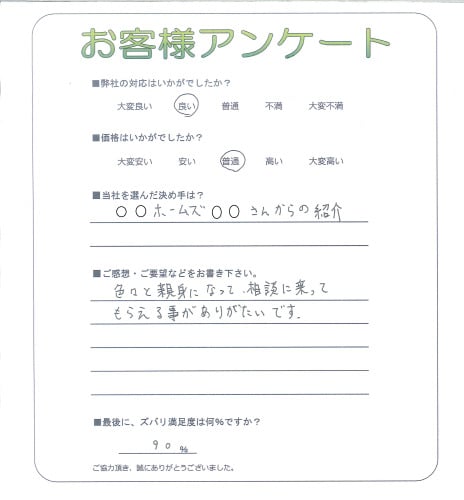 お客様アンケート
■弊社の対応はいかがでしたか？
大変良い 良い 普通 不満 大変不満
■価格はいかがでしたか？
大変安い 安い 普通 高い 大変高い
■当社を選んだ決め手は？
○○ホームズ○○さんからの紹介
■ご感想・ご要望などをお書き下さい。
色々と親身になって、相談に乗って
もらえる事がありがたいです。
■最後に、ズバリ満足度は何％ですか？
90％
ご協力頂き、誠にありがとうございました。